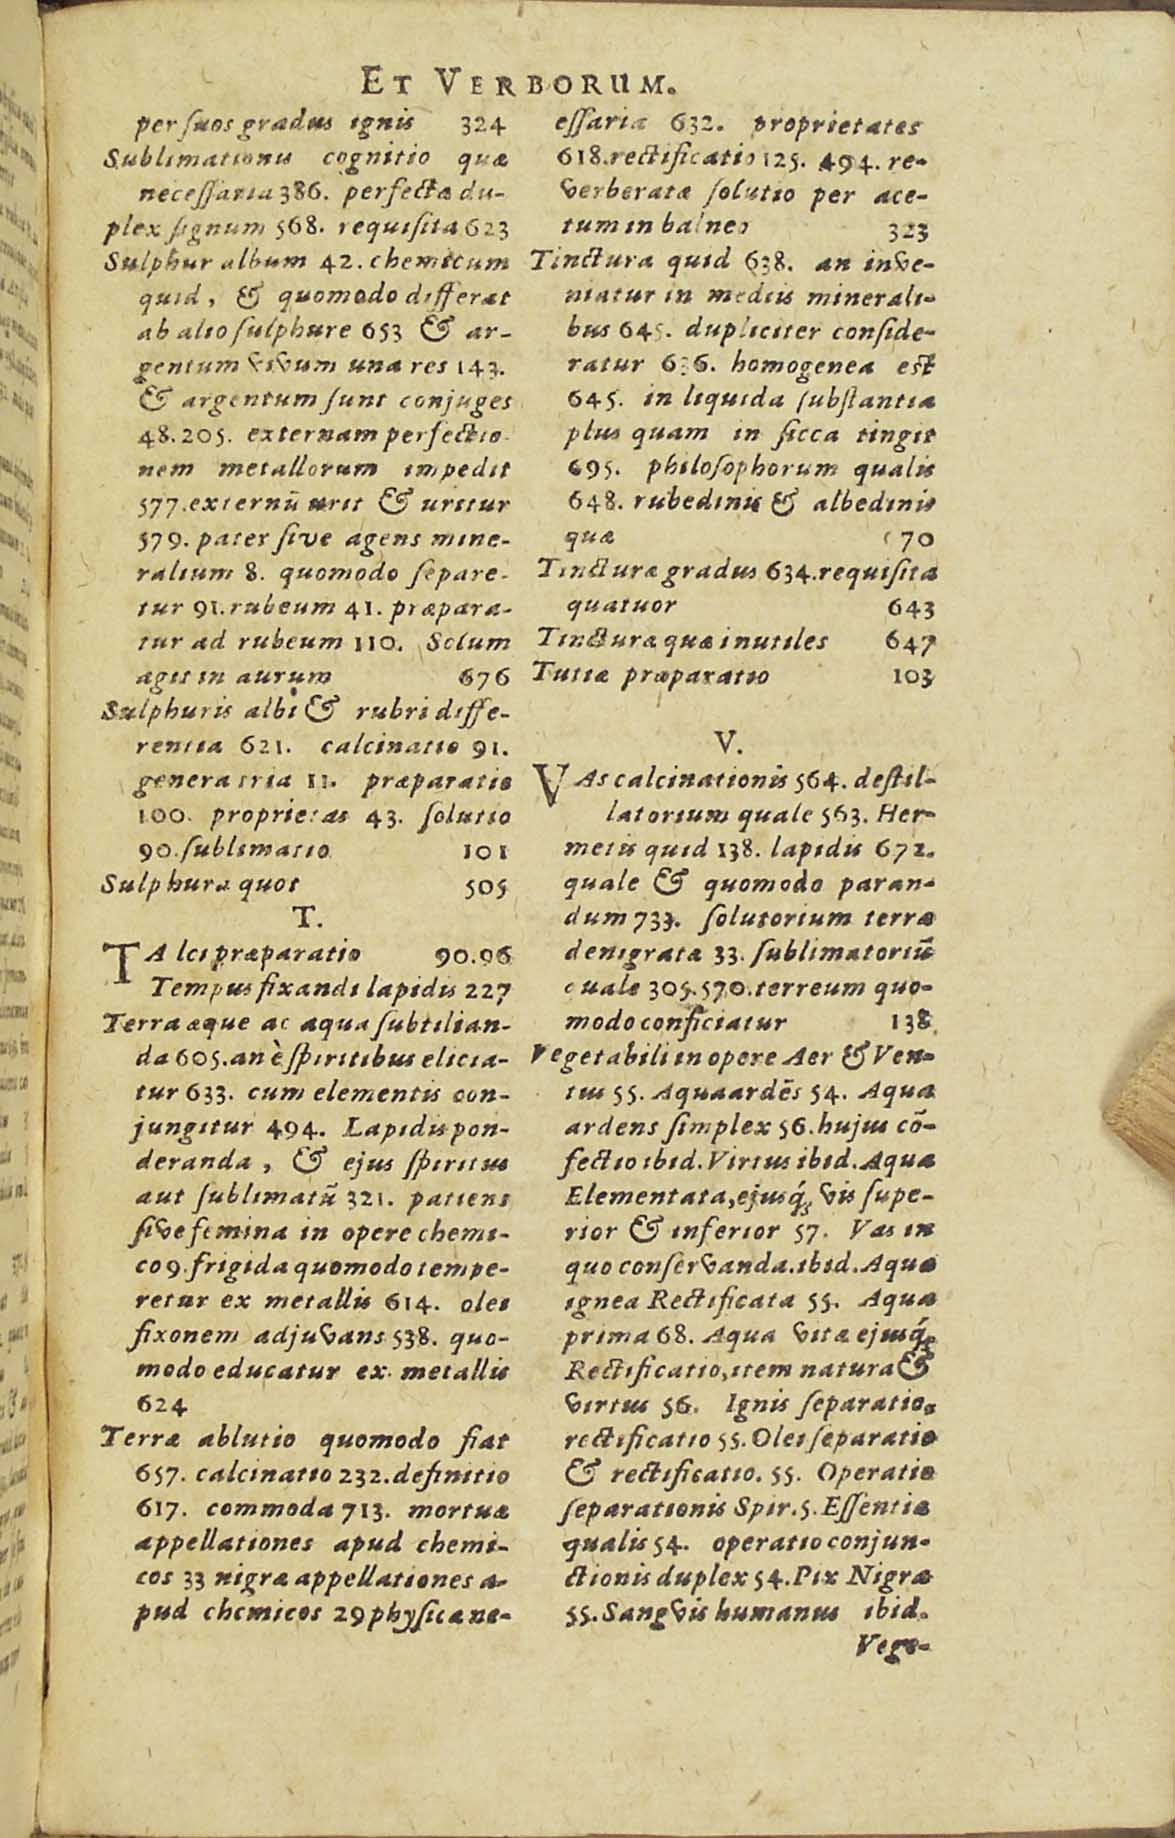 ET VERBORUM.
per ſuos gradus ignis 324
Sublimationis cognitio quæ
neceſſaria 386. perfectæ du-
plex ſignum 568. requiſita 623
Sulphur album 42. chemicum
quid, & quomodo differat
ab alio ſulphure 653 & ar-
gentum vivum una res 143.
& argentum ſunt conjuges
48. 205. externam perfectio
nem metallorum impedit
577. externū urit & uritur
579. pater ſive agens mine-
ralium 8. quomodo ſepare-
tur 91. rubeum 41. præpara-
tur ad rubeum 110. Solum
agit in aurum 676
Sulphuris albi & rubri diffe-
rentia 621. calcinatio 91.
genera tria 11. præparatio
100. proprietas 43. ſolutio
90. ſublimatio 101
Sulphura quot 505
T.
TAlci præparatio 90. 96
Tempus fixandi lapidis 227
Terra æque ac aqua ſubtilian-
da 605. an è ſpiritibus elicia-
tur 633. cum elementis con-
jungitur 494. Lapidis pon-
deranda, & ejus ſpiritus
aut ſublimatū 321. patiens
ſive femina in opere chemi-
co 9. frigida quomodo tempe-
retur ex metallis 614. olei
fixonem adjuvans 538. quo-
modo educatur ex metallis
624
Terræ ablutio quomodo fiat
657. calcinatio 232. definitio
617. commoda 713. mortuæ
appellationes apud chemi-
cos 33 nigræ appellationes a-
pud chemicos 29 phyſicæ ne-
eſſaria 632. proprietates
618. rectificatio 125. 494. re-
verberatæ ſolutio per ace-
tum in balneo 323
Tinctura quid 638. an inve-
niatur in mediis minerali-
bus 645. dupliciter conſide-
ratur 636. homogenea est
645. in liquida ſubſtantia
plus quam in ſicca tingit
695. philoſophorum qualis
648. rubedinis & albedinis
quæ 70
Tincturæ gradus 634. requiſita
quatuor 643
Tincturæ quæ inutiles 647
Tutiæ præparatio 103
V.
VAs calcinationis 564. deſtil-
latorium quale 563. Her-
metis quid 138. lapidis 672.
quale & quomodo paran-
dum 733. ſolutorium terræ
denigratæ 33. ſublimatoriū
quale 305. 570. terreum quo-
modo conficiatur 138
Vegetabili in opere Aer & Ven-
tus 55. Aqua ardēs 54. Aqua
ardens ſimplex 56. hujus cō-
fectio ibid. Virtus ibid. Aqua
Elementata, ejusq́; vis ſupe-
rior & inferior 57. Vas in
quo conſervanda. ibid. Aqua
ignea Rectificata 55. Aqua
prima 68. Aqua vitæ ejusq́;
Rectificatio, item natura &
virtus 56. Ignis ſeparatio,
rectificatio 55. Olei ſeparatio
& rectificatio. 55. Operatio
ſeparationis Spir. 5. Eſſentiæ
qualis 54. operatio conjun-
ctionis duplex 54. Pix Nigra
55. Sangvis humanus ibid.
Vege-